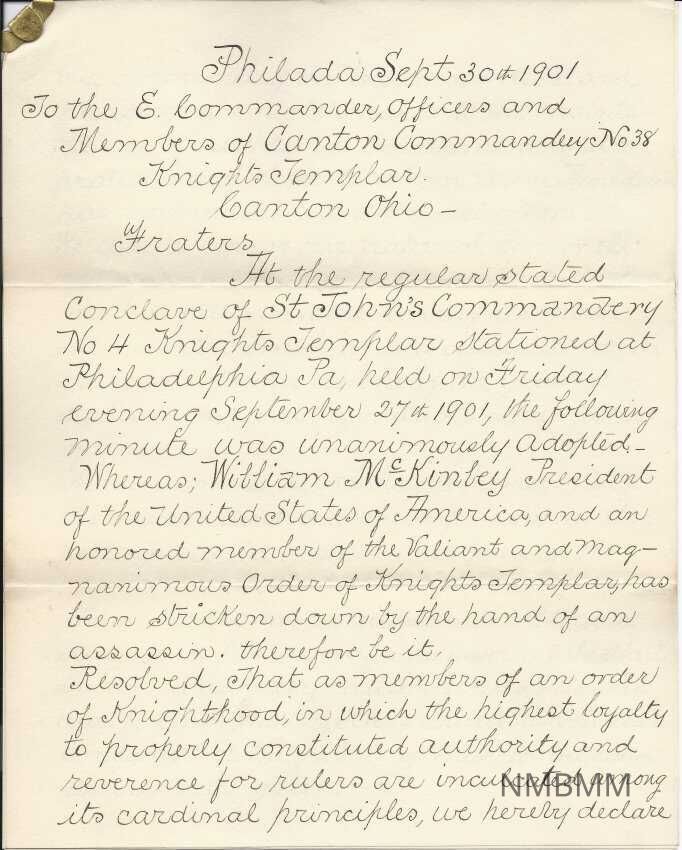 Philada Sept 30th 1901
To the E. Commander, Officers and
Members of Canton Commandery No 38
Knights Templar.
Canton Ohio –
Fraters
At the regular stated
Conclave of St John's Commandery
No 4 Knights Templar stationed at
Philadelphia Pa, held on Friday
evening September 27th 1901, the following
minute was unanimously adopted. –
Whereas; William McKinley President
of the United States of America, and an
honored member of the Valiant and Mag-
nanimous Order of Knights Templar, has
been stricken down by the hand of an
assassin. therefore be it,
Resolved, That as members of an order
of Knighthood, in which the highest loyalty
to properly constituted authority and
reverence for rulers are inculcated among
its cardinal principles, we hereby declare
NMBMM